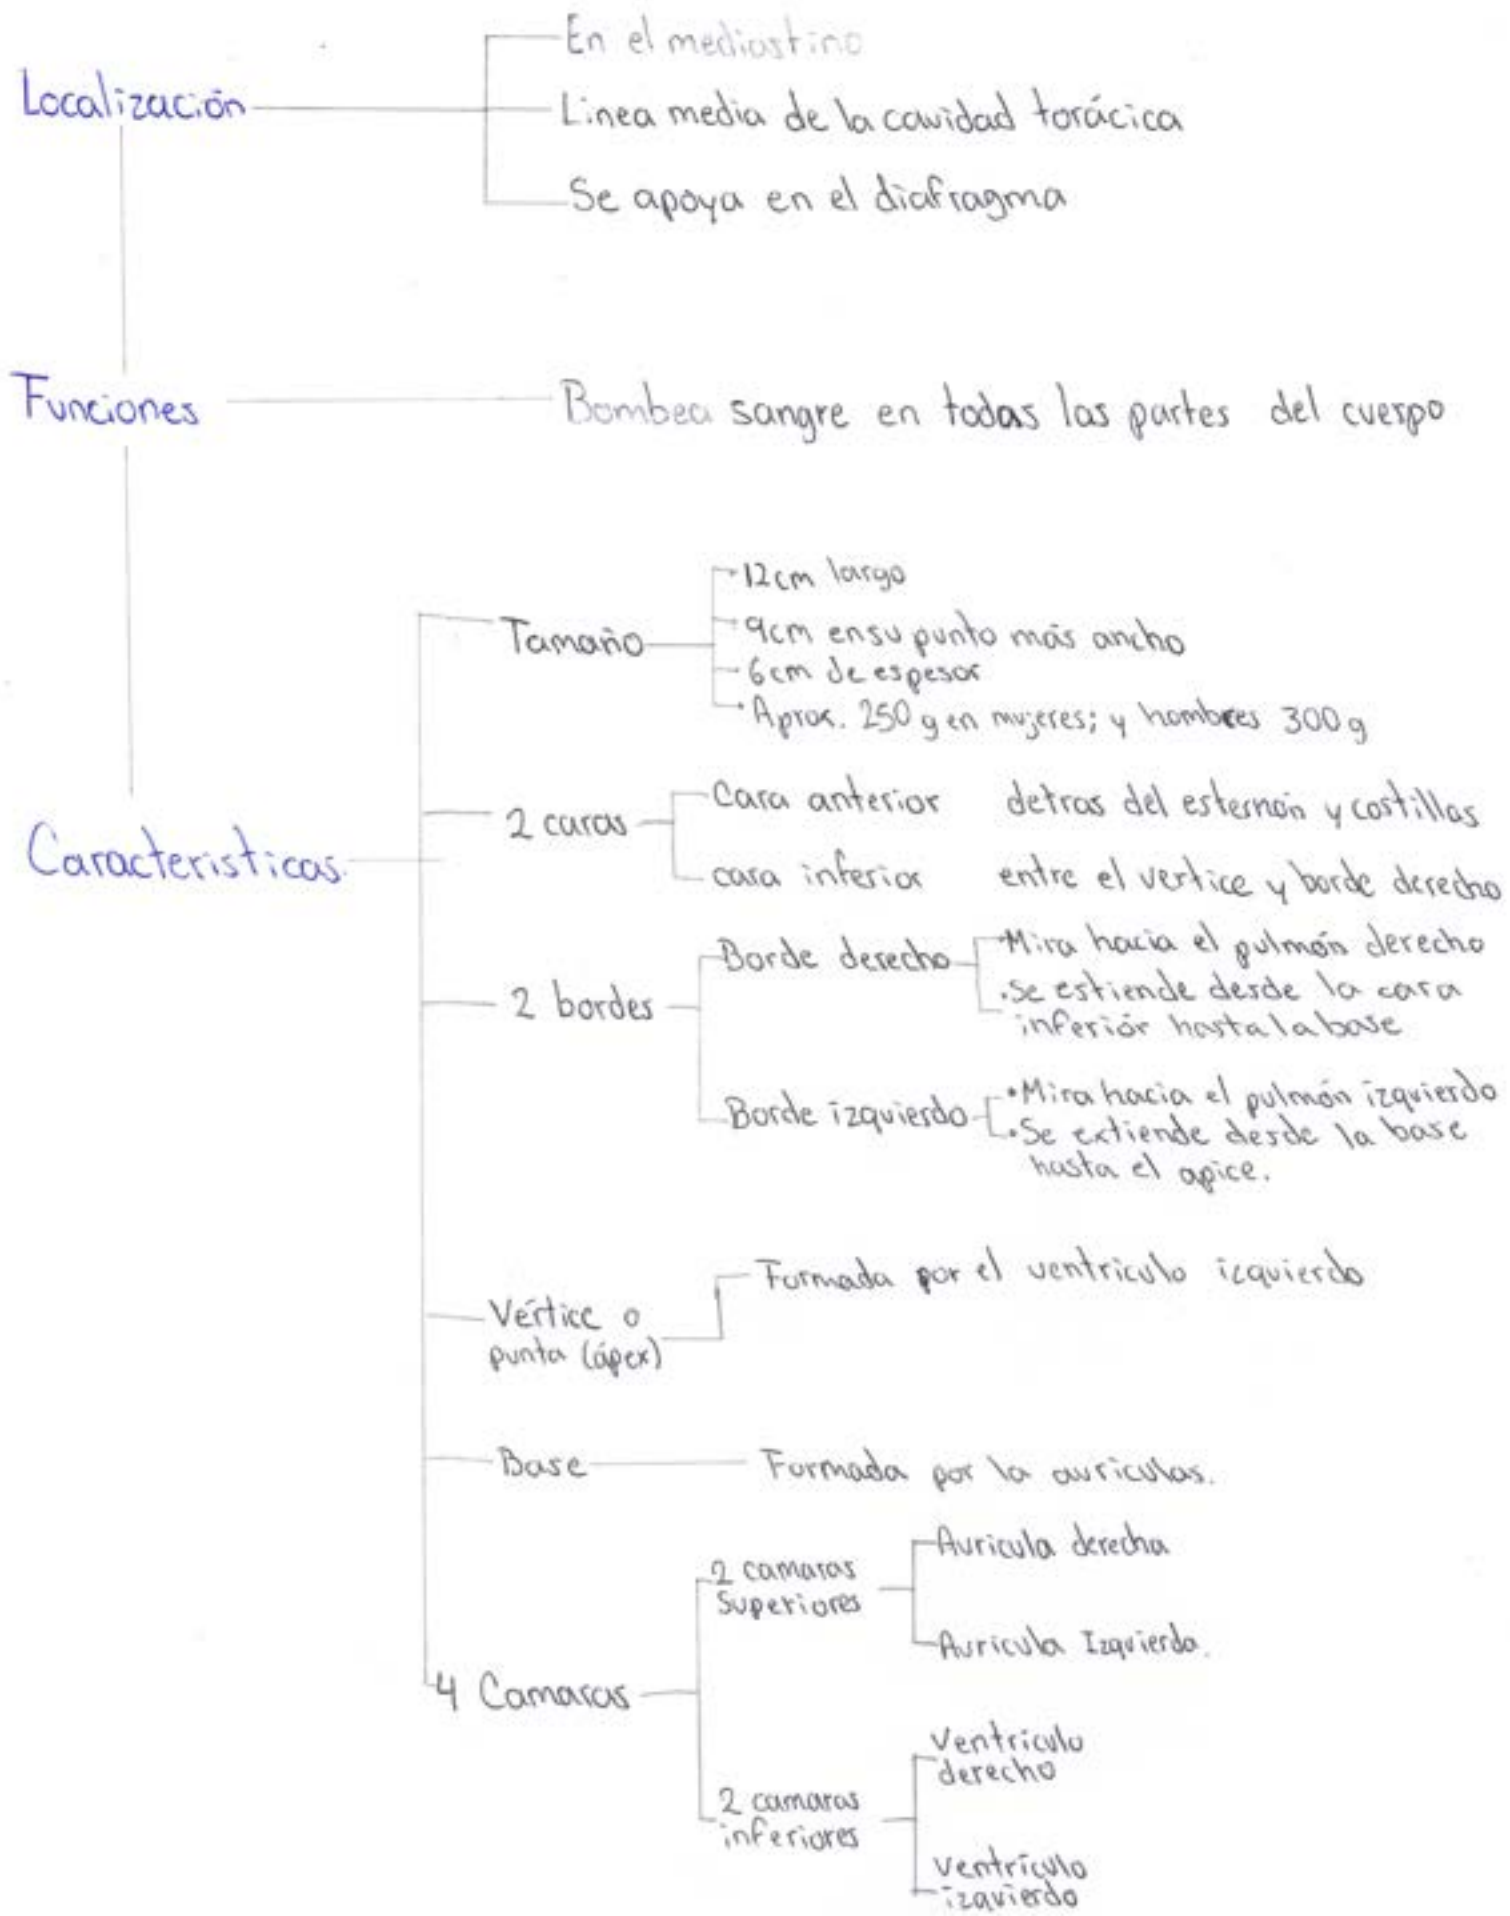 En el mediastino
Localización
Linea media de la cavidad torácica
Se apoya en el diafragma
Funciones
Bombea sangre en todas las partes del cuerpo
Tamaño
12cm largo
9cm en su punto más ancho
6cm de espesor
Aprox. 250 g en mujeres; y hombres 300 g
Caracteristicas.
2 caras
Cara anterior detras del esternón y costillas
cara inferior entre el vertice y borde derecho
2 bordes
Borde derecho
Mira hacia el pulmón derecho
• Se estiende desde la cara
inferiór hasta la base
Borde izquierdo
• Mira hacia el pulmón izquierdo
• Se extiende desde la base
hasta el apice.
Vértice o
punta (ápex)
Formada por el ventriculo izquierdo
Base
Formada por la auriculas.
4 Camaras
2 camaras
Superiores
Auricula derecha
Auricula Izquierda.
2 camaras
inferiores
Ventriculo
derecho
Ventrículo
izquierdo